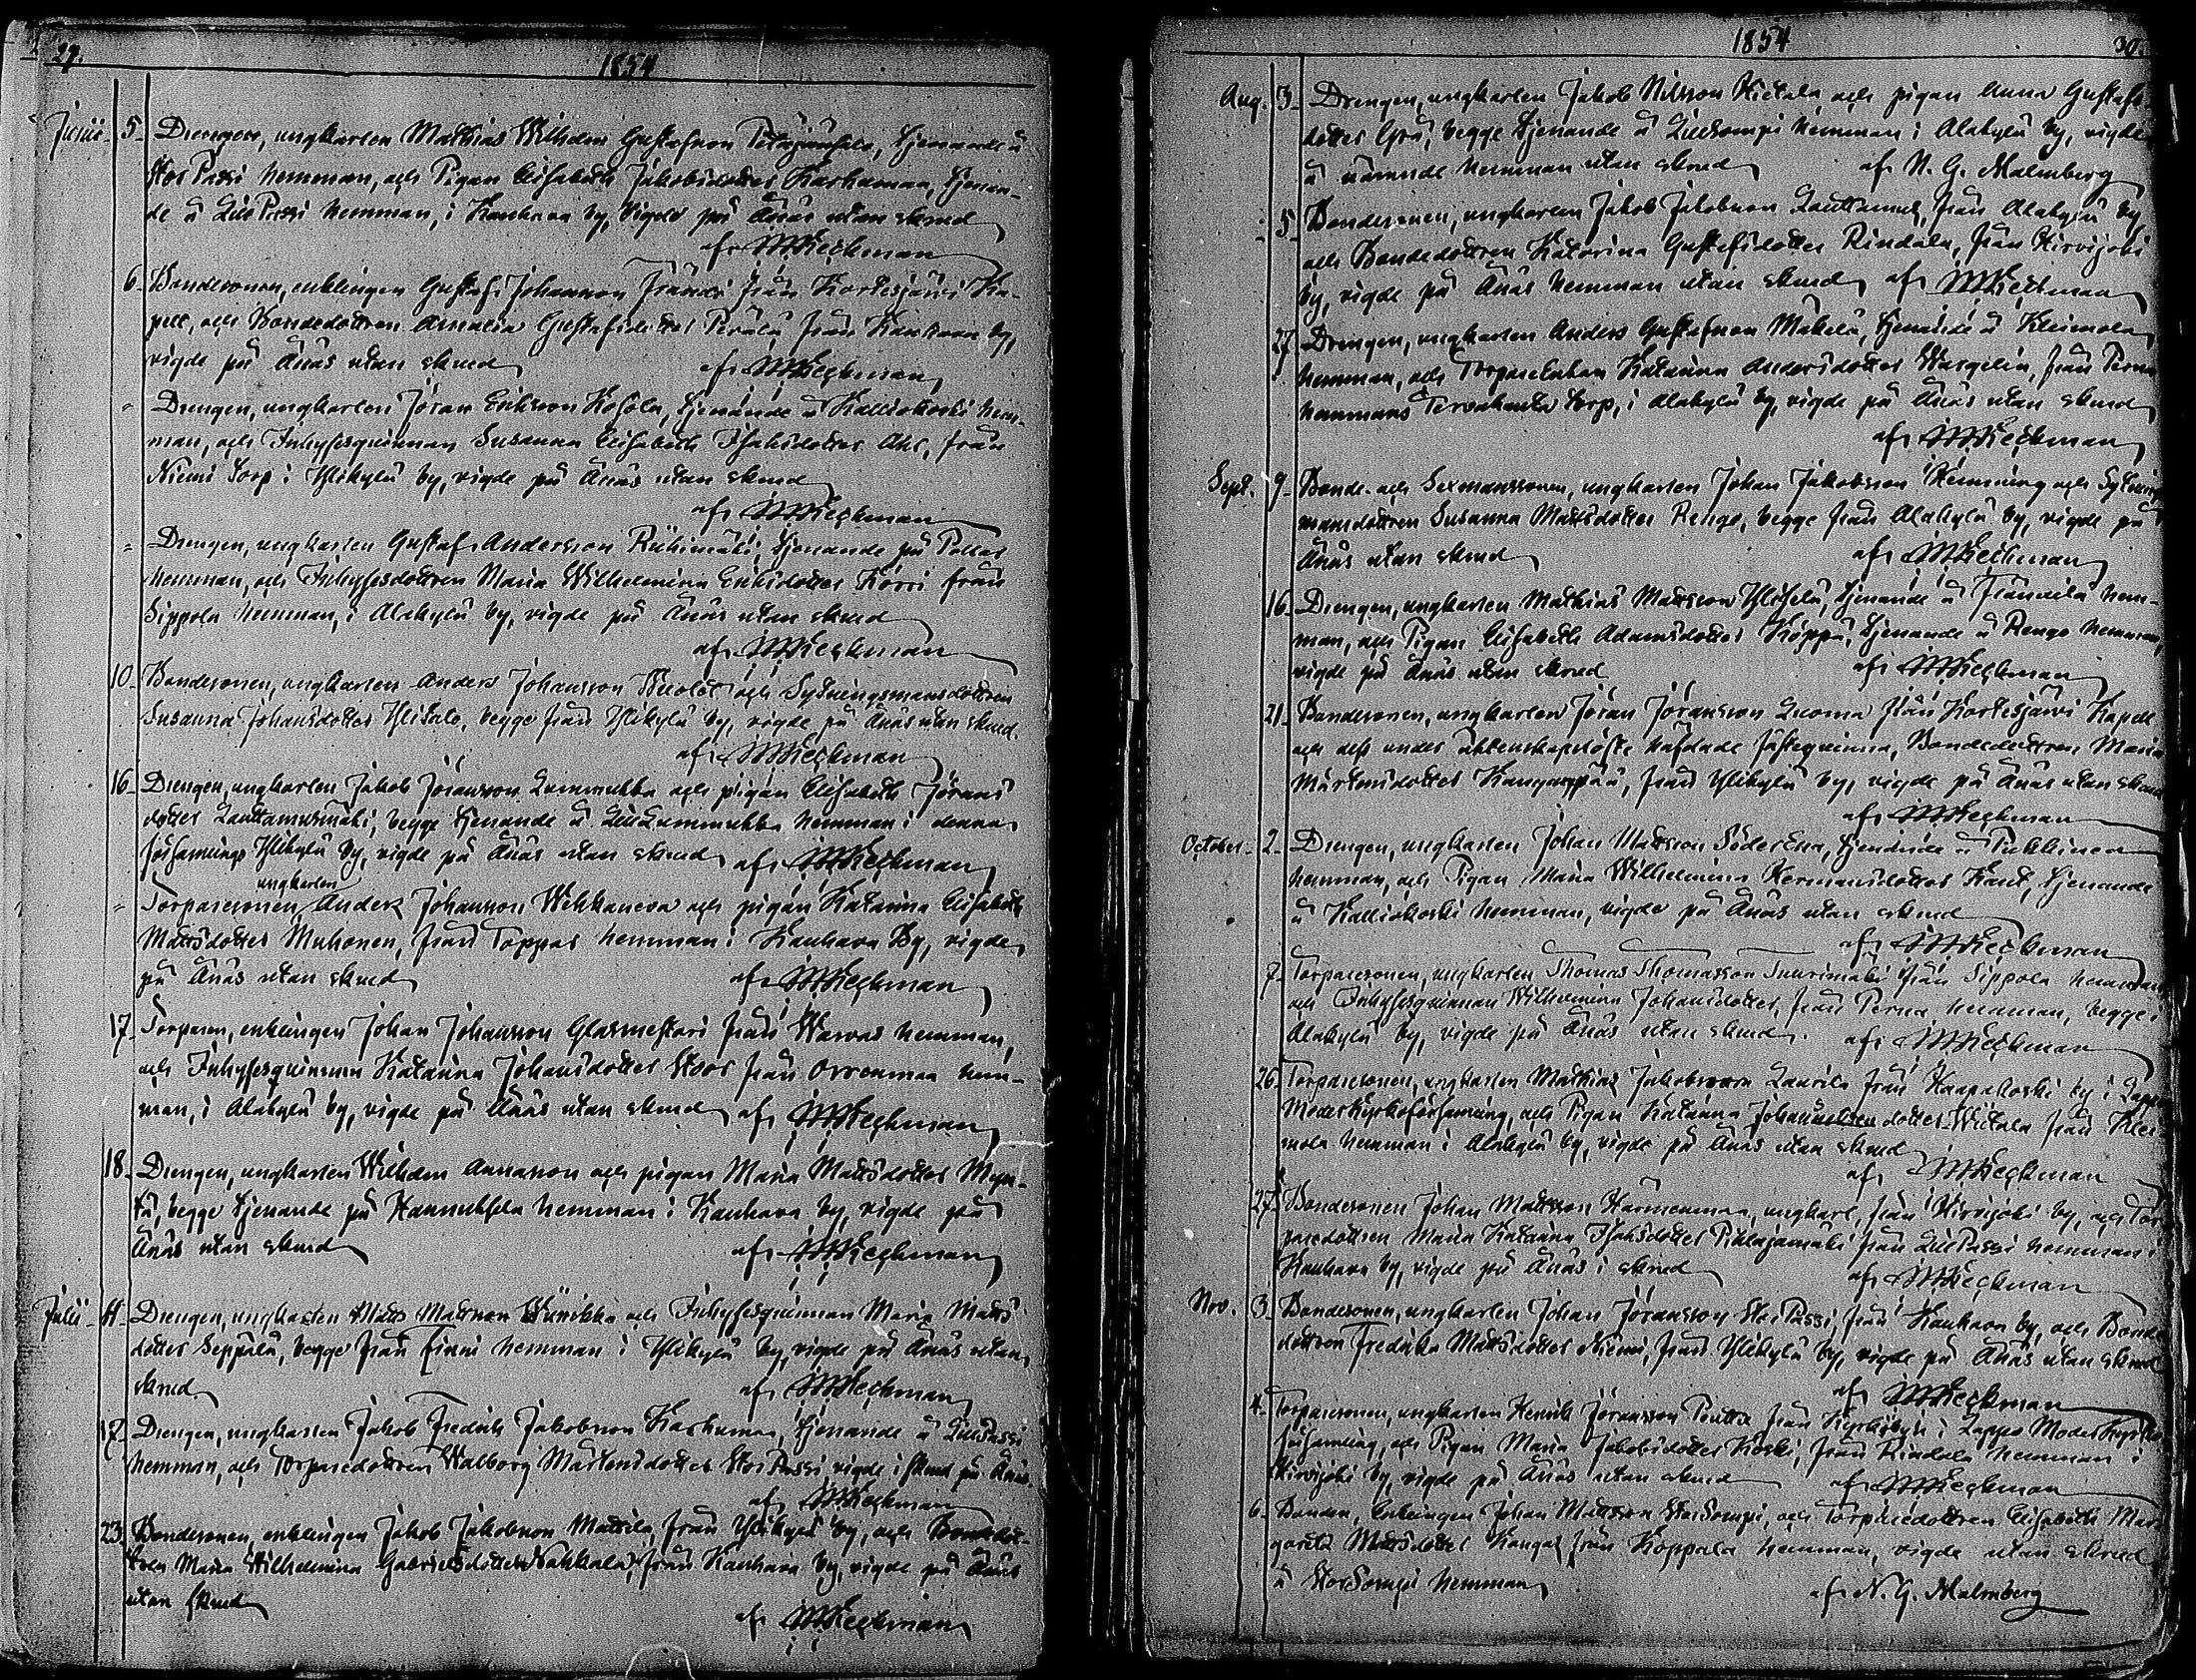 29.
1854
Junii 5. Drengen, ungkarlen Mathias Wilhelm Gustafsson Petäjänsalo, tjenande å
Stor Passi hemman, och Pigan Elisabeth Jakobsdotter Karhumaa, tjenan-
de å Lill Passi hemman, i Kauhava by, vigde på Änäs utan skrud
af M. Heckman
6. Bondesonen, enklingen Gustaf Johansson Frändi från Kortesjärvi Ka-
pell, och Bondedottren Amalia Gustafsdotter Perälä från Kauhava by,
vigde på Änäs utan skrud
af M. Heckman
" Drengen, ungkarlen Jöran Eriksson Kosola, tjenande å Kalliokoski hem-
man, och Inhysesquinnan Susanna Elisabeth Isaksdotter Ahl, från
Niemi torp i Ylikylä by, vigde på Änäs utan skrud
af M. Heckman
" Drengen, ungkarlen Gustaf Andersson Riihimäki, tjenande på Pollar
hemman, och Inhysesdottren Maria Wilhelmina Eriksdotter Körri från
Sippola hemman, i Alakylä by, vigde på Änäs utan skrud
af M. Heckman
10. Bondesonen, ungkarlen Anders Johansson och Sytningsmansdottren
Susanna Johansdotter Ylitalo, begge från Ylikylä by, vigde på Änäs utan skrud.
af M. Heckman
16. Drengen, ungkarlen Jakob Jöransson Lummukka och pigan Elisabeth Jörans
dotter Lauttamusmäki, begge tjenande å Lill Lummukka hemman i denna
församlings Ylikylä by, vigde på Änäs utan skrud af M. Heckman
ungkarlen
" Torparesonen, Anders Johansson Wehkaneva och pigan Katarina Elisabeth
Mattsdotter Muhonen, från Toppar hemman i Kauhava By, vigde
på Änäs utan skrud af M. Heckman
17. Torparen, enklingen Johan Johansson Glasmestari från Warvas hemman,
och Inhysesquinnan Katarina Johansdotter Stoor från Orrenmaa hem-
man, i Alakylä by, vigde på Änäs utan skrud af M. Heckman
18. Drengen, ungkarlen Wilhelm Annasson och pigan Maria Mattsdotter
begge tjenande på Hannuksela hemman i Kauhava by, vigde på
Änäs utan skrud af M. Heckman
Julii 11. Drengen, ungkarlen Matts Mattsson Wiirikko och Inhysesquinnan Maria Matts
dotter Seppälä, begge från Finni hemman i Ylikylä by, vigde på Änäs utan
skrud. af M. Heckman
17. Drengen, ungkarlen Jakob Fredrik Jakobsson Karhumaa, tjenande å Lill Passi
hemman, och Torparedottren Walborg Mårtensdotter Stor Passi vigde i skrud på Änäs.
af M. Heckman
23. Bondesonen, enklingen Jakob Jakobsson Mattila, från Ylikylä by, och Bondedot-
tren Maria Wilhelmina Gabrielsdotter Nahkala, från Kauhava by, vigde på Änäs
utan skrud
af M. Heckman
1854
30.
Aug. 3. Drengen, ungkarlen Jakob Nilsson Hietala och pigan Anna Gustafs-
dotter Grå, begge tjenande å Lill Sompi hemman i Alakylä by, vigde
å nämnde hemman utan skrud af N. G. Malmberg
5. Bondesonen, ungkarlen Jakob Jakobsson Lauttamus, från Alakylä by
och Bondedottren Katarina Gustafsdotter Rindala, från Hirvijoki
by, vigde på Änäs hemman utan skrud af M. Heckman
27. Drengen, ungkarlen Anders Gustafsson Mäkelä, tjenande å Kleimola
hemman, och Torpareenkan Katarina Andersdotter Wargelin, från Perna
hemmans Tervahauta torp, i Alakylä by, vigde på Änäs utan skrud
af M. Heckman
Sept. 9. Bonde- och Sexmanssonen, ungkarlen Johan Jakobsson Hemming och Sytnings
mansdottren Susanna Mattsdotter Rengo, begge från Alakylä by, vigde på
Änäs utan skrud af M. Heckman
16. Drengen, ungkarlen Mathias Mattsson tjenande å Frändilä hem-
man, och Pigan Elisabeth Adamsdotter Köppä, tjenande å Rengo hemman,
vigde på Änäs utan skrud af M. Heckman
21. Bondesonen, ungkarlen Jöran Jöransson Luoma från Kortesjärvi Kapell
och dess under äktenskapslöfte häfdade fästequinna, Bondedottren Maria
Mårtensdotter Kangaspää, från Ylikylä by, vigde på Änäs utan skrud
af M. Heckman
October 2. Drengen, ungkarlen Johan Mattsson Söderena, tjenande å Pukkinen
hemman, och Pigan Maria Wilhelmina Hermansdotter Kant, tjenande
å Kalliokoski hemman, vigde på Änäs utan skrud
af M. Heckman
7. Torparesonen, ungkarlen Thomas Thomasson Tuurimäki från Sippola hemman
och Inhysesquinnan Wilhelmina Johansdotter, från Perna hemman, begge i
Alakylä by, vigde på Änäs utan skrud. af M. Heckman
26. Torparesonen, ungkarlen Mathias Jakobsson Laurila från Haapakoski by i Lappo
Moderkyrkoförsamling, och Pigan Katarina dotter Wiitala från Klei-
mola hemman i Alakylä by, vigde på Änäs utan skrud
af M. Heckman
27. Bondesonen Johan Mattsson Harmenmaa, ungkarl, från Hirvijoki by, och Tor-
paredottren Maria Katarina Isaksdotter Pihlajamäki från Lill Passi hemman i
Kauhava by, vigde på Änäs i skrud af M. Heckman
Nov. 3. Bondesonen, ungkarlen Johan Jöransson Stor Passi, från Kauhava by, och Bonde
dottren Fredrika Mattsdotter Niemi, från Ylikylä by, vigde på Änäs utan skrud
af M. Heckman
4. Torparesonen, ungkarlen Henrik Jöransson Poutta från Kyrkobyn i Lappo Moderkyrko
församling, och Pigan Maria Jakobsdotter Koski, från Rindala hemman i
Hirvijoki by, vigde på Änäs utan skrud af M. Heckman
6. Bonden, Enklingen Johan Mattsson Stor Sompi, och Torparedottren Elisabeth Mar-
gareta Mattsdotter Kangas från Koppala hemman, vigde utan skrud
å Stor Sompi hemman af N. G. Malmberg